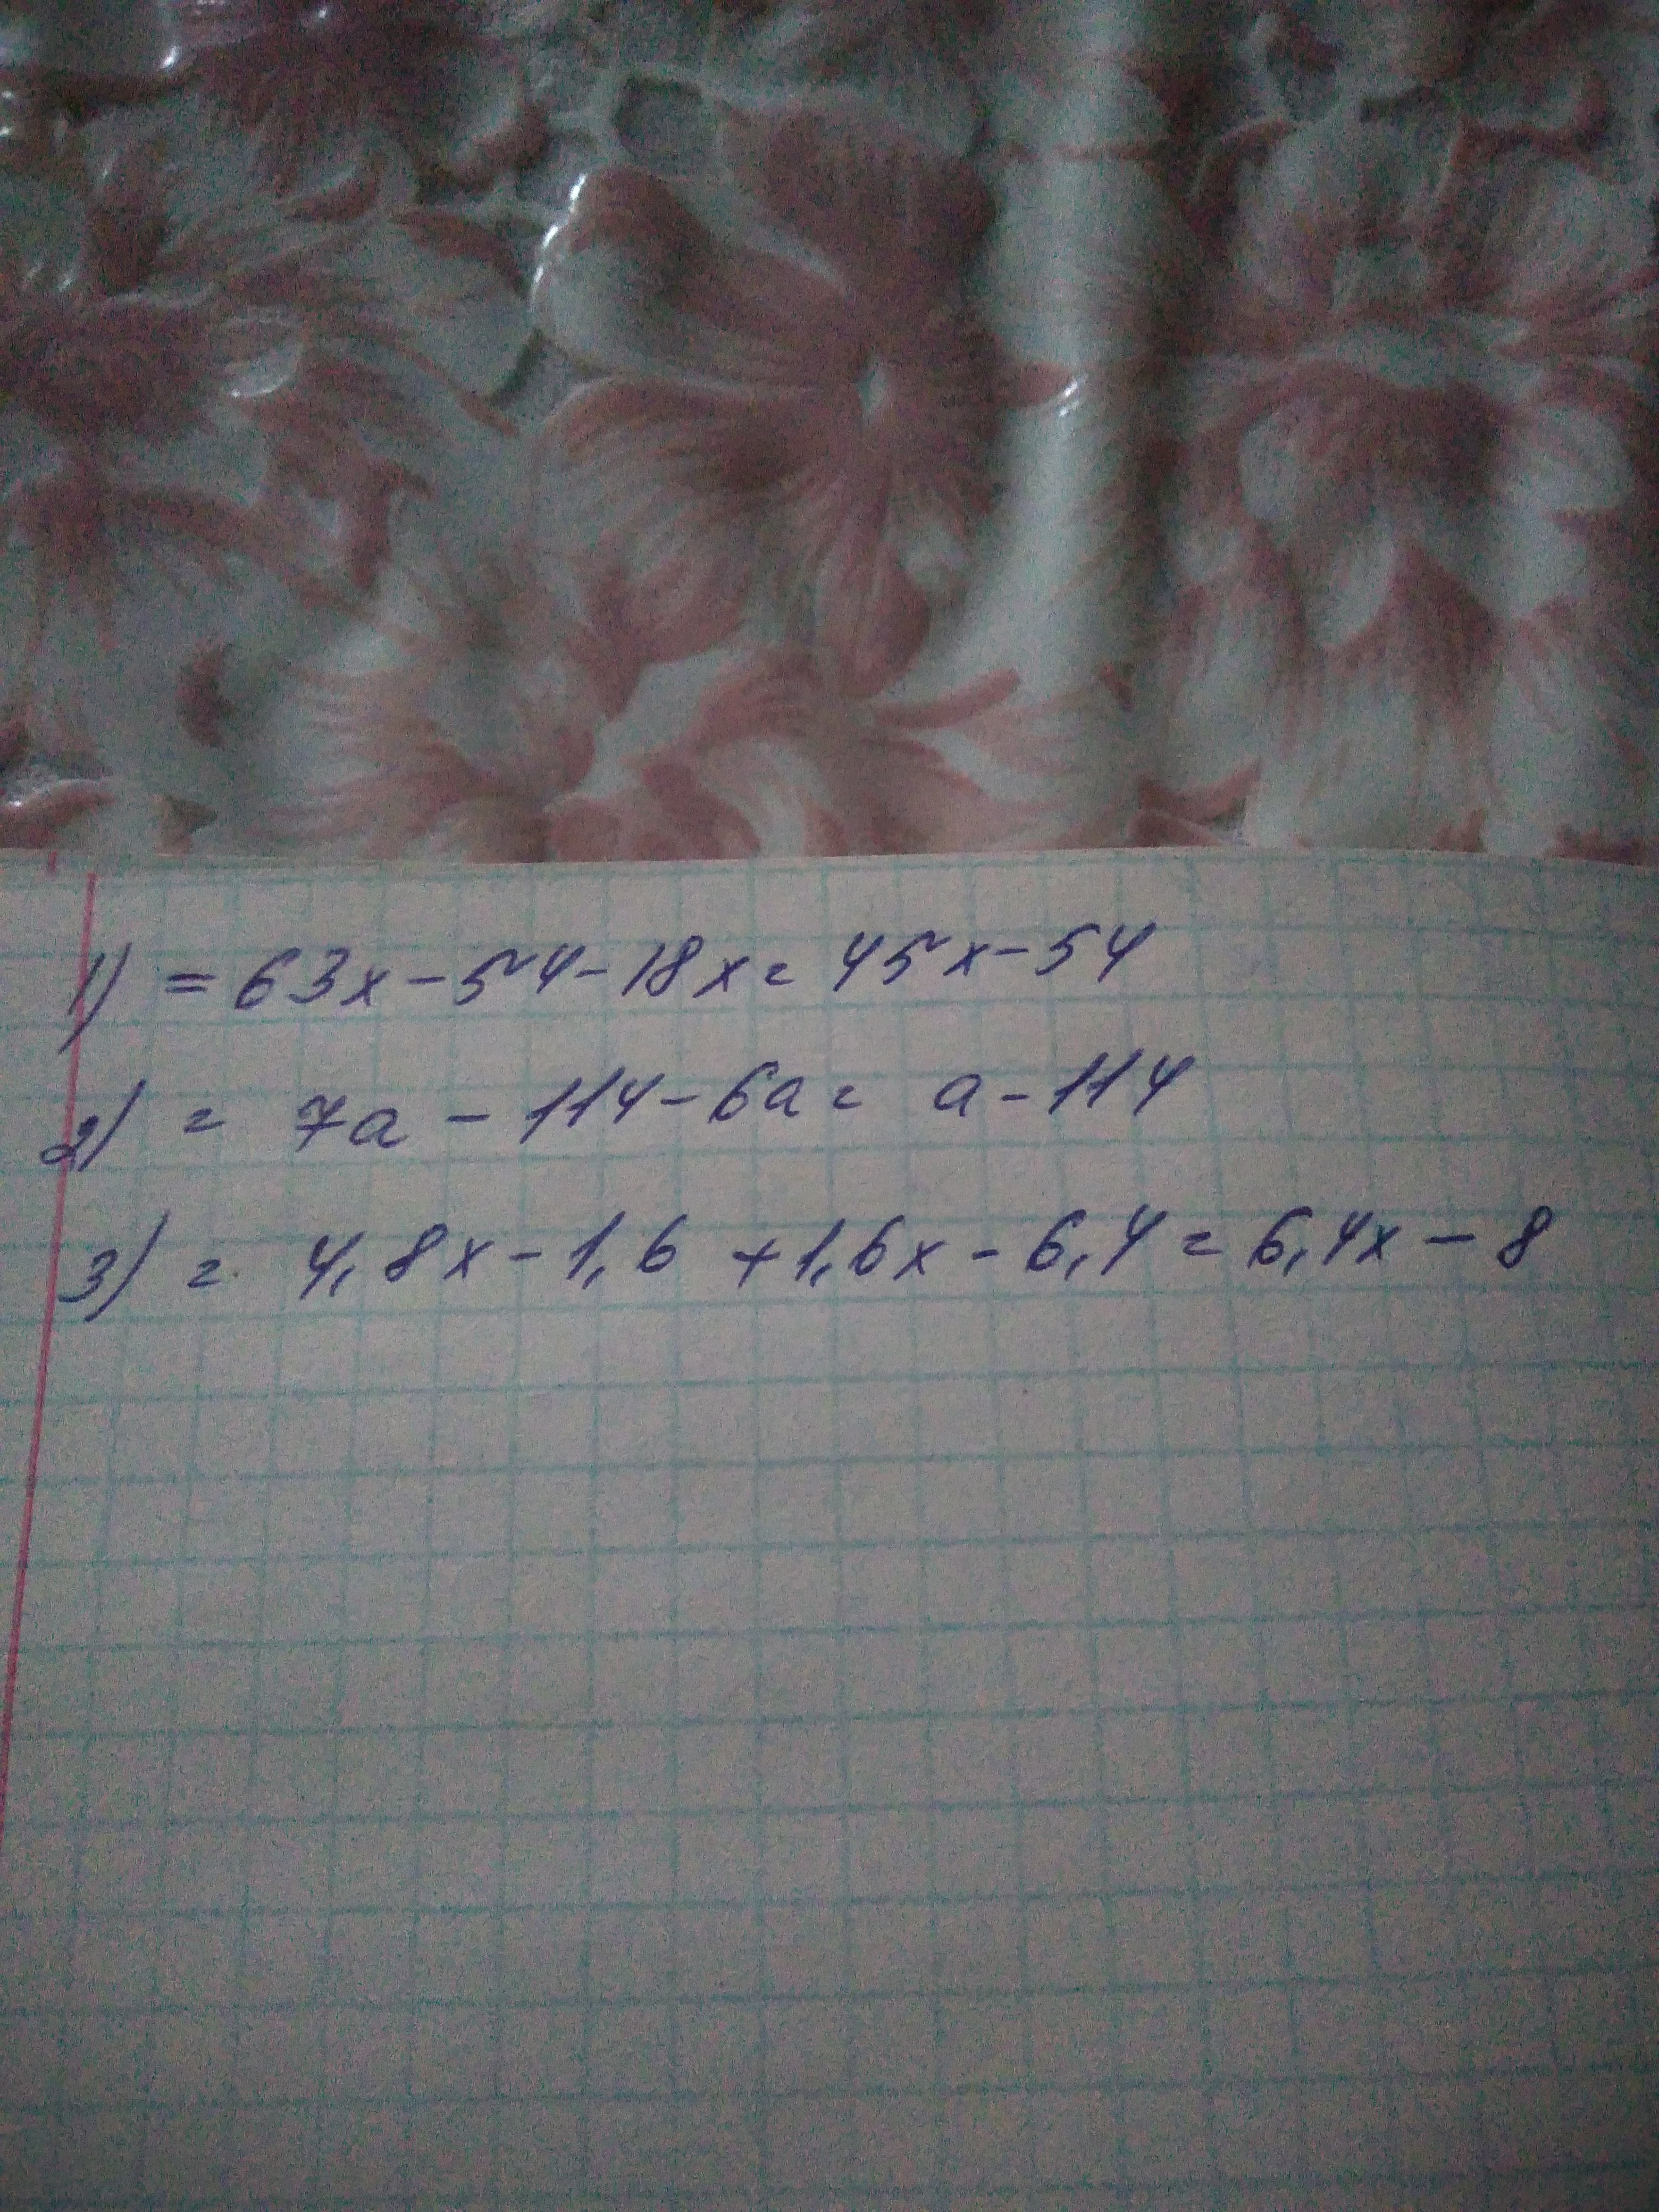 1) = 63x - 54 - 18x = 45x - 54
2) = 7a - 114 - 6a = a - 114
3) = 4,8x - 1,6 + 1,6x - 6,4 = 6,4x - 8